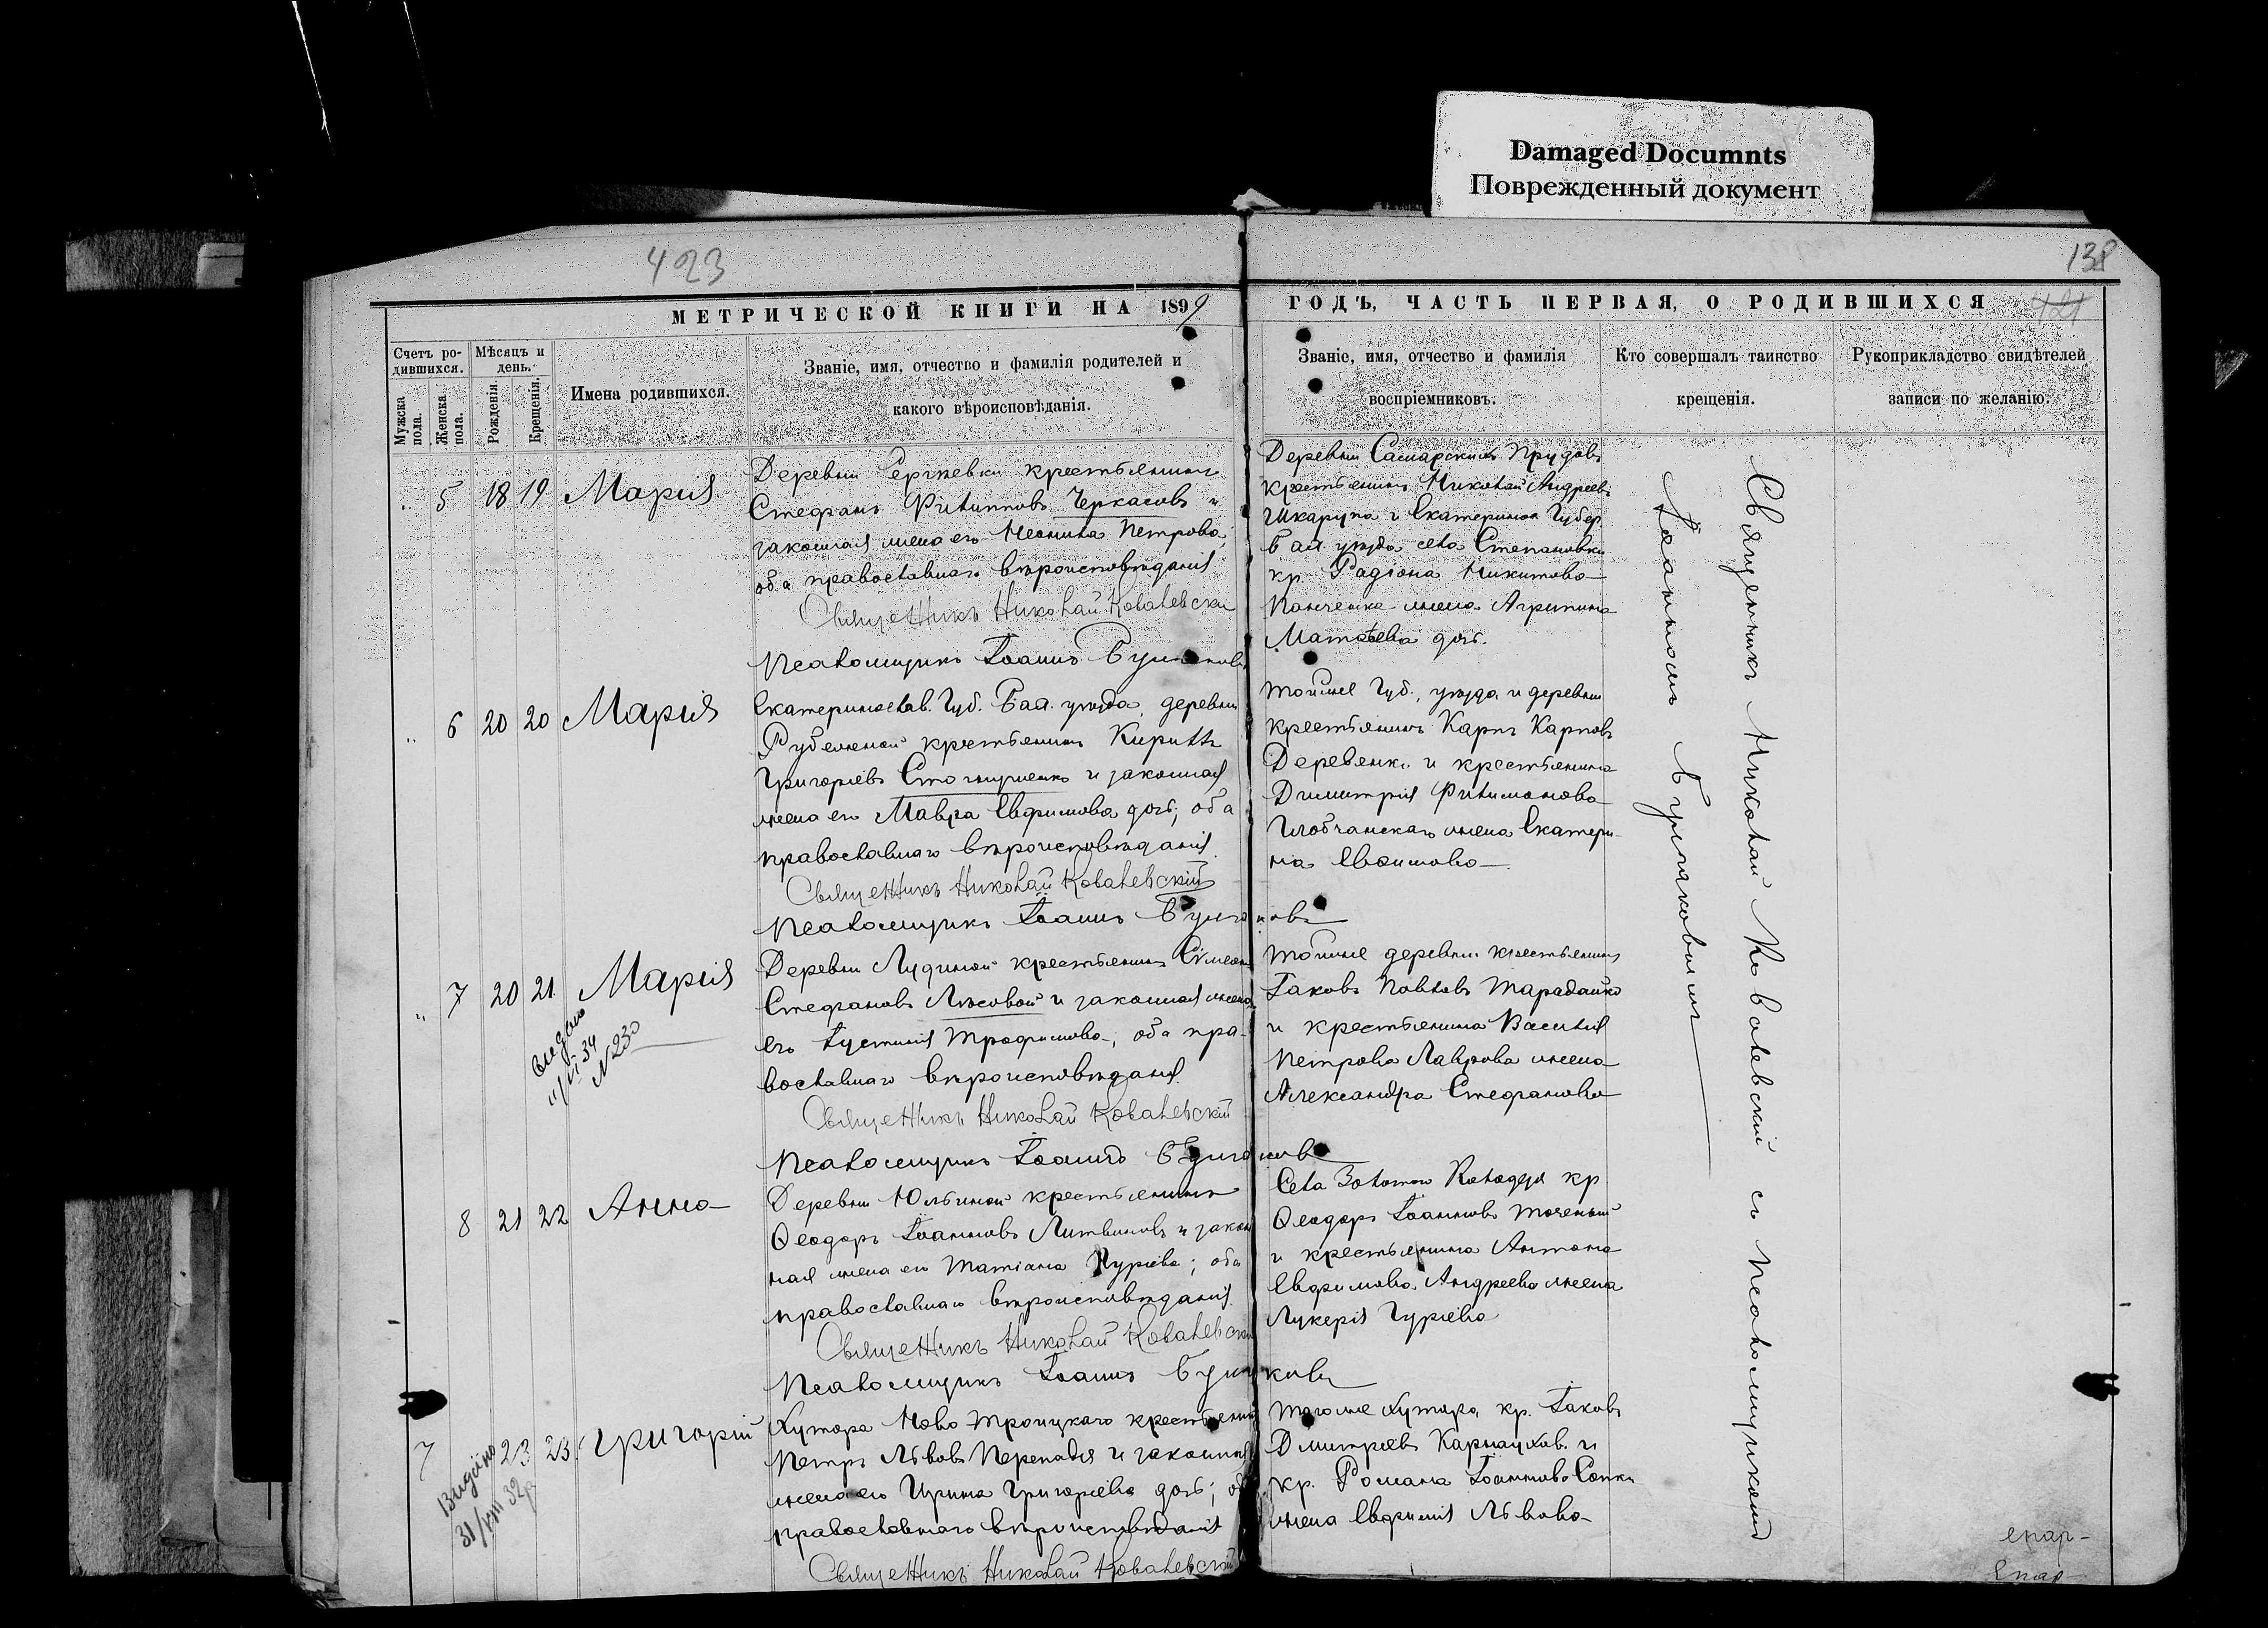 Damaged Documnts
Поврежденный документ
423
138
МЕТРИЧЕСКОЙ КНИГИ НА 1899
ГОДЪ, ЧАСТЬ ПЕРВАЯ, О РОДИВШИХСЯ
Счетъ ро-
дившихся.
Мѣсяцъ и
день.
Мужска
пола.
Женска
пола.
Рожденія
Крещенія.
Имена родившихся.
Званіе, имя, отчество и фамилія родителей и
какого вѣроисповѣданія.
Званіе, имя, отчество и фамилія
воспріемниковъ.
Кто совершалъ таинство
крещенія.
Рукоприкладство свидѣтелей
записи по желанію.
5 18 19 Марія
Деревни Сергѣевки крестьянинъ
Стефанъ Филипповъ Черкасовъ и
законная жена его Неонила Петрова,
оба православнаго вѣроисповѣданія
Священникъ Николай Ковалевскі
Псаломщикъ Іоаннъ
Деревни Самарскихъ Прудовъ
крестьянинъ Николай Андреевъ
Шкарупа и Екатеринос Губер.
Бах. уѣзда села Степановки
кр. Радіона Никитова
Панченка жена Агрипина
Матвѣева доч.
6 20 20 Марія
Екатеринослав. Губ. Бах. уѣзда, деревни
крестьянинъ Кириллъ
Григоріевъ и законная
жена его Мавра Евфимова доч; оба
православнаго вѣроисповѣданія
Священникъ Николай Ковалевскій
Псаломщикъ Іоаннъ
тойже Губ., уѣзда и деревни
крестьянинъ Карпъ Карповъ
Деревенко и крестьянина
Димитрія Филимонова
жена Екатери-
на
7 20 21 Марія
Деревни Лудиной крестьянинъ Симеонъ
Стефановъ Лѣсовой и законная жена
его Іустинія Трофимова, оба пра-
вославнаго вѣроисповѣданія.
Священникъ Николай Ковалевскій
Псаломщикъ Іоаннъ
тойже деревни крестьянинъ
Іаковъ Павловъ Тарадайко
и крестьянина Василія
Петрова Лаврова жена
Александра Стефанова
№230
8 21 22 Анна
Деревни Юльиной крестьянинъ
Ѳеодоръ Іоанновъ Литвиновъ и закон
ная жена его Татіана Гуріева; оба
православнаго вѣроисповѣданія
Священникъ Николай Ковалевскі
Псаломщикъ Іоаннъ
Села Золотой Колодезь кр
Ѳеодоръ Іоанновъ Точеный
и крестьянина Антона
Евфимова Андреева жена
Лукерія Гуріева
7 23 23 Григорій
Хутора Ново Троицкаго крестьянинъ
Петръ Львовъ и законная
жена его Ирина Григоріева доч; об
православнаго вѣроисповѣданія
Священникъ Николай Ковалевскій
тогоже Хутора, кр. Іаковъ
Дмитріевъ Карнаухов. и
кр. Романа Іоаннова
жена Евфимія Львова
Видано
31/VIII 32р
Священникъ Николай Ковалевскій съ псаломщикомъ
Іоанномъ
епар-
Епар